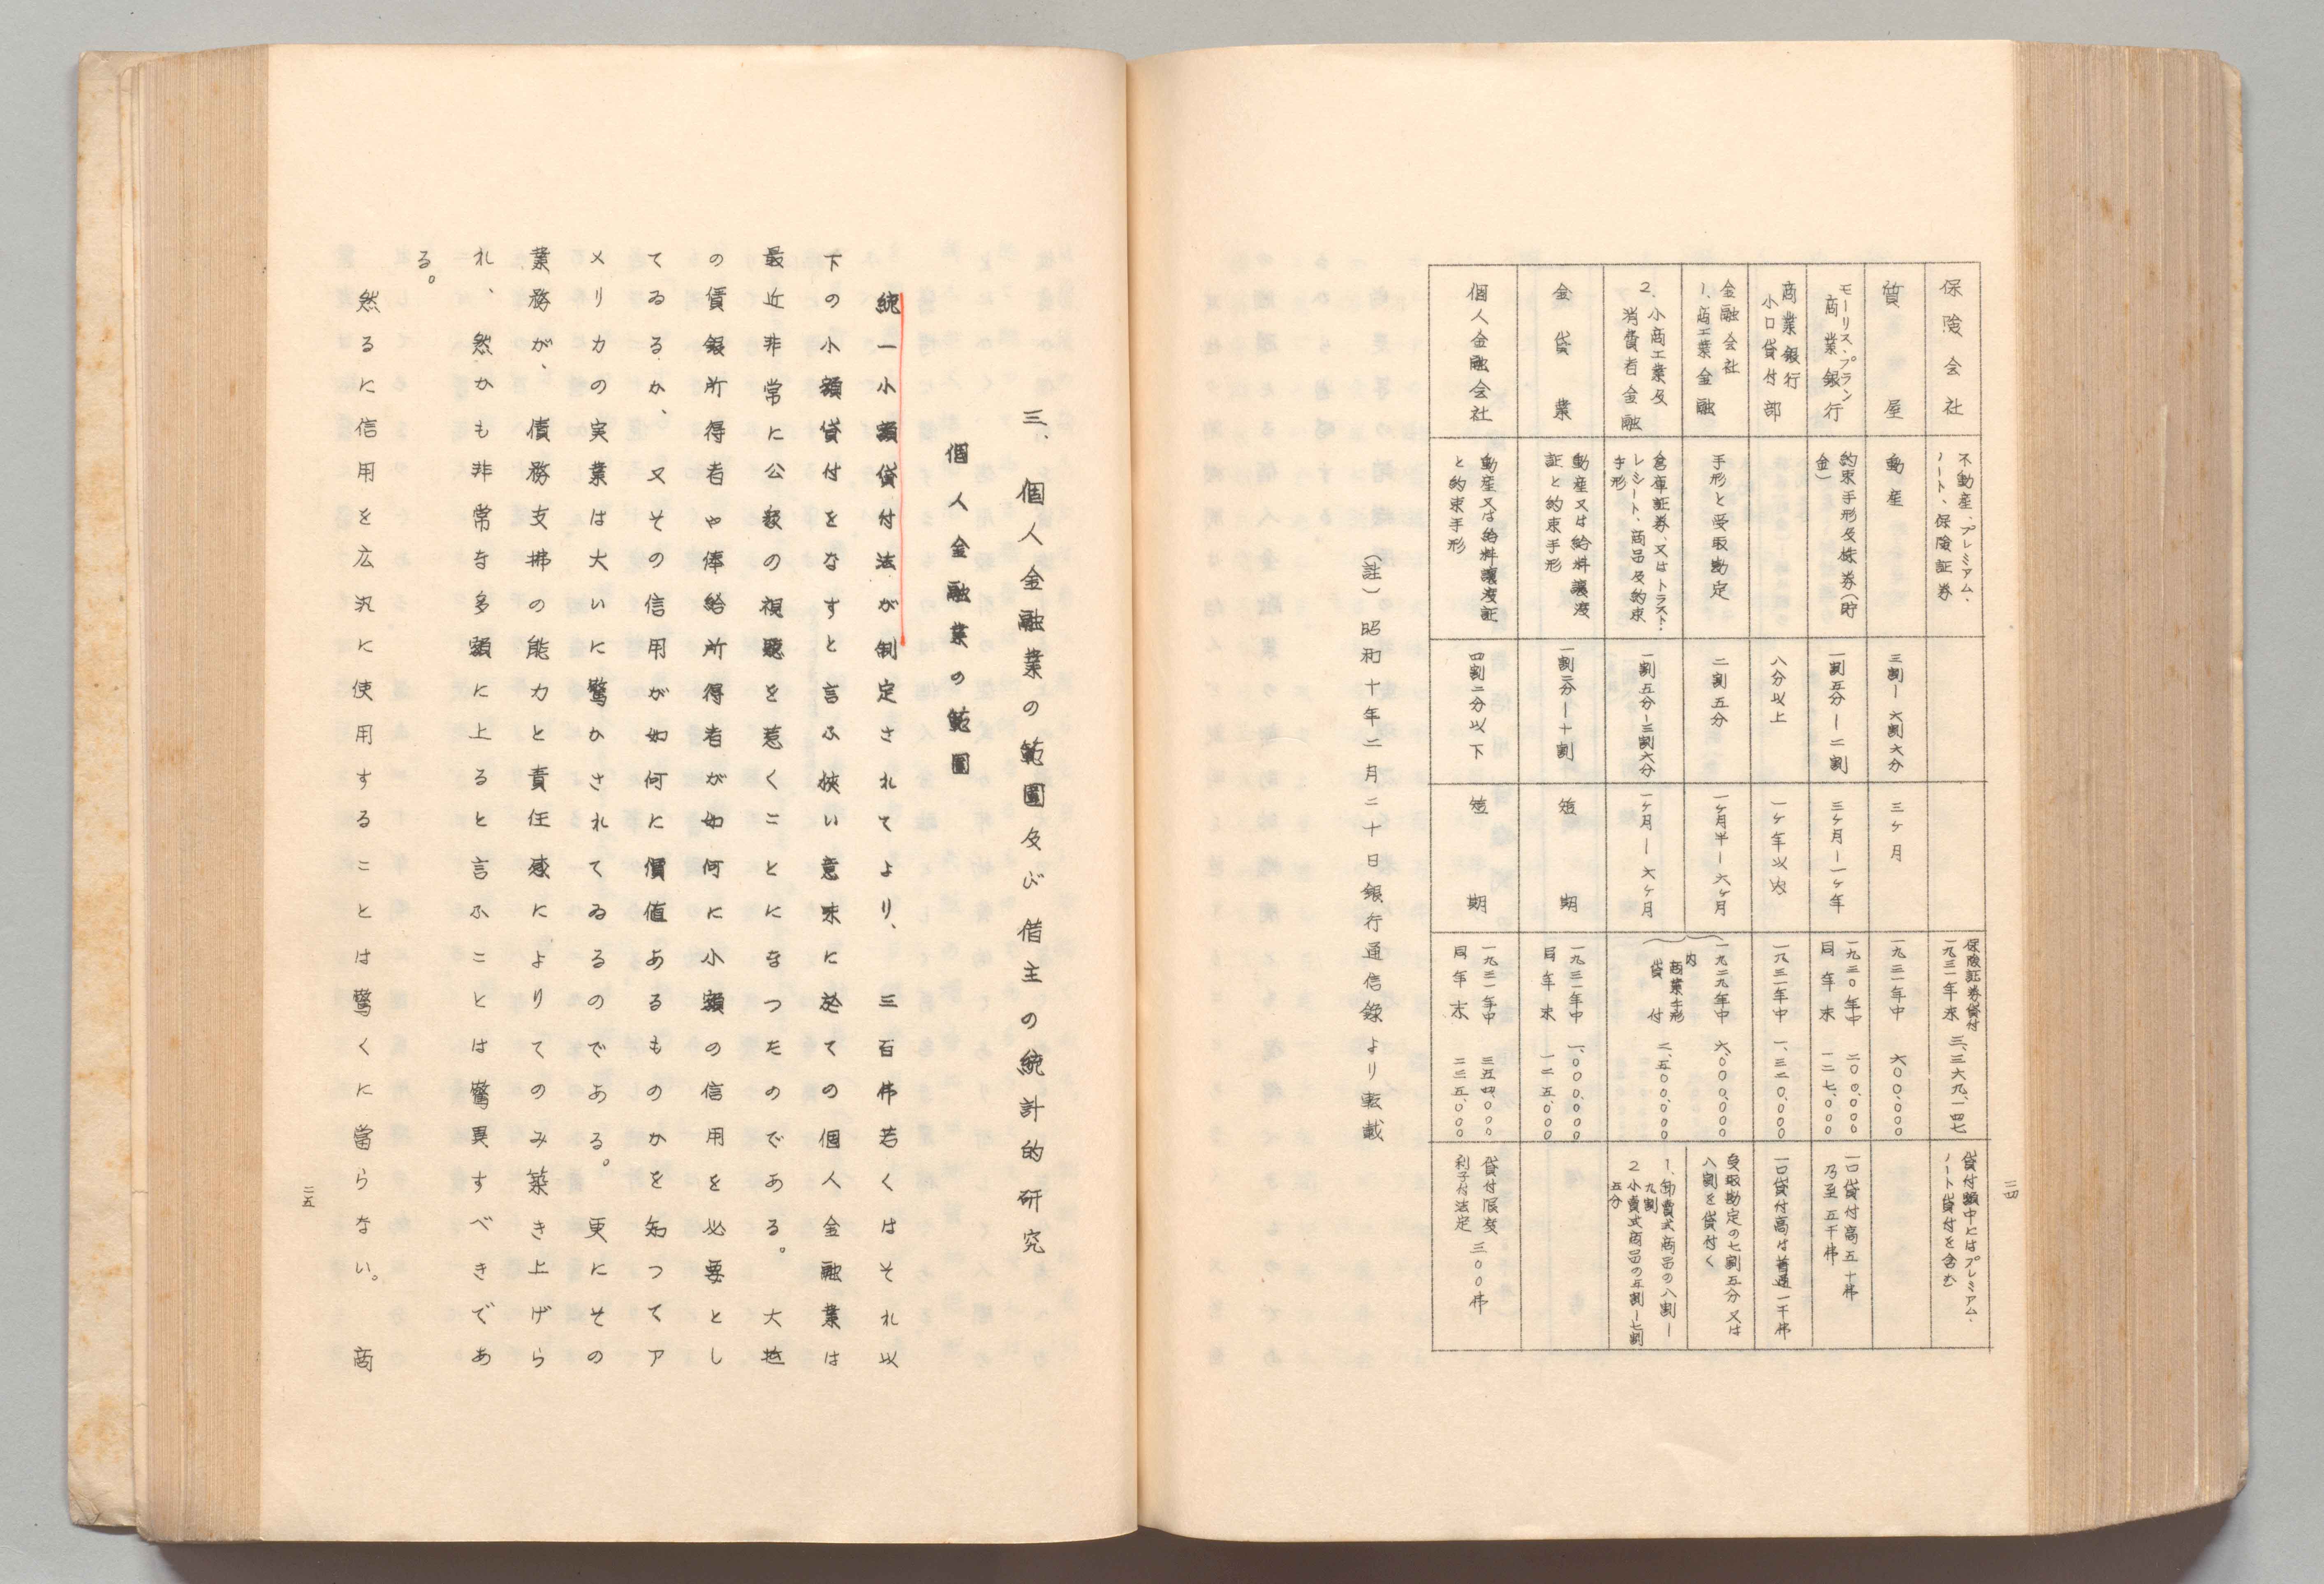 二四
保険会社
不動産、プレミアム・
ノート、保険証券
保険証券貸付
一九三一年末 三、三六九、一四七
貸付額中にはプレミアム・
ノート貸付を含む
質屋
動産
三割ー六割六分
三ヶ月
一九三一年中 六〇〇、〇〇〇
モーリス・プラン
商業銀行
約束手形及株券(貯
金)
一割五分ー二割
三ヶ月ー一ヶ年
一九三〇年中 二〇〇、〇〇〇
同年末 一二七、〇〇〇
一口貸付高五十弗
乃至五千弗
商業銀行
小口貸付部
八分以上
一ヶ年以内
一九三一年中 一、三二〇、〇〇〇
一口貸付高は普通一千弗
金融会社
1、商工業金融
手形と受取勘定
二割五分
一ヶ月半ー六ヶ月
一九二九年中 六、〇〇〇、〇〇〇
受取勘定の七割五分又は
八割を貸付く
2、小商工業及
消費者金融
倉庫証券、又はトラスト・
レシート、商品及約束
手形
一割五分ー三割六分
一ヶ月ー六ヶ月
内
商業手形
貸付 二、五〇〇、〇〇〇
1、卸賣式商品の八割ー
九割
2 小賣式商品の五割ー七割
五分
金貸業
動産又は給料譲渡
証と約束手形
短期
一九三一年中 一、〇〇〇、〇〇〇
同年末 一二五、〇〇〇
個人金融会社
動産又は給料譲渡証
と約束手形
四割二分以下
短期
一九三一年中 三五四、〇〇〇
同年末 二二五、〇〇〇
貸付限度 三〇〇弗
利子付法定
(註) 昭和十年二月二十日銀行通信錄より転載
三、個人金融業の範圍及び借主の統計的研究
個人金融業の範圍
統一小額貸付法が制定されてより、三百弗若くはそれ以
下の小額貸付をなすと言ふ狭い意味に於ての個人金融業は
最近非常に公衆の視聴を惹くことになつたのである。大抵
の賃銀所得者や俸給所得者が如何に小額の信用を必要とし
てゐるか、又その信用が如何に價値あるものかを知つてア
メリカの実業は大いに驚かされてゐるのである。更にその
業務が、債務支拂の能力と責任感によりてのみ築き上げら
れ、然かも非常な多額に上ると言ふことは驚異すべきであ
る。
然るに信用を広汎に使用することは驚くに當らない。商
二五